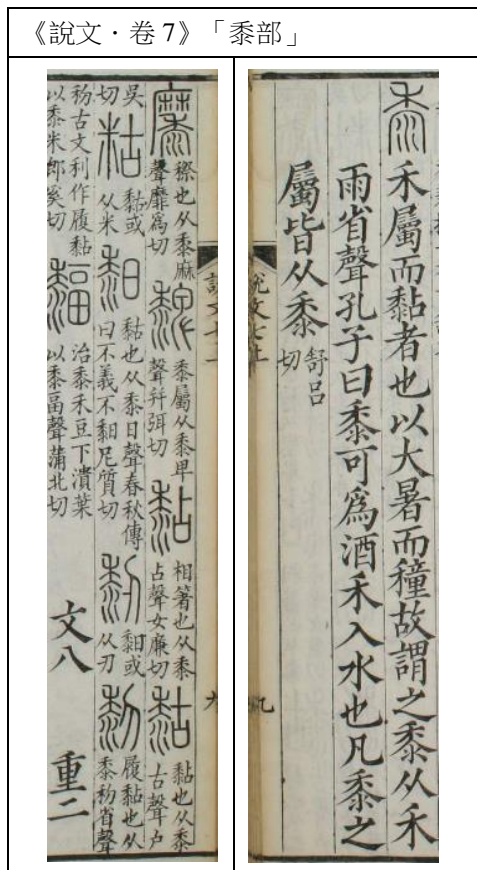 《說文·卷7》「黍部」
黍禾屬而黏者也以大暑而穜故謂之黍从禾
雨省聲孔子曰黍可爲酒禾入水也凡黍之
屬皆从黍舒呂切
穄也从黍麻聲靡爲切 䵗黍屬从黍卑聲并弭切 黏相箸也从黍占聲女廉切 䵛黏也从黍古聲户
吳切 䊀黏或从米 䵒黏也从黍日聲春秋傳曰不義不䵒尼質切 䵑䵒或从刃 黎履黏也从黍𥝢省聲
𥝢古文利作履黏以黍米郎奚切 䵔治黍禾豆下潰葉以黍畐聲蒲北切 文八 重二